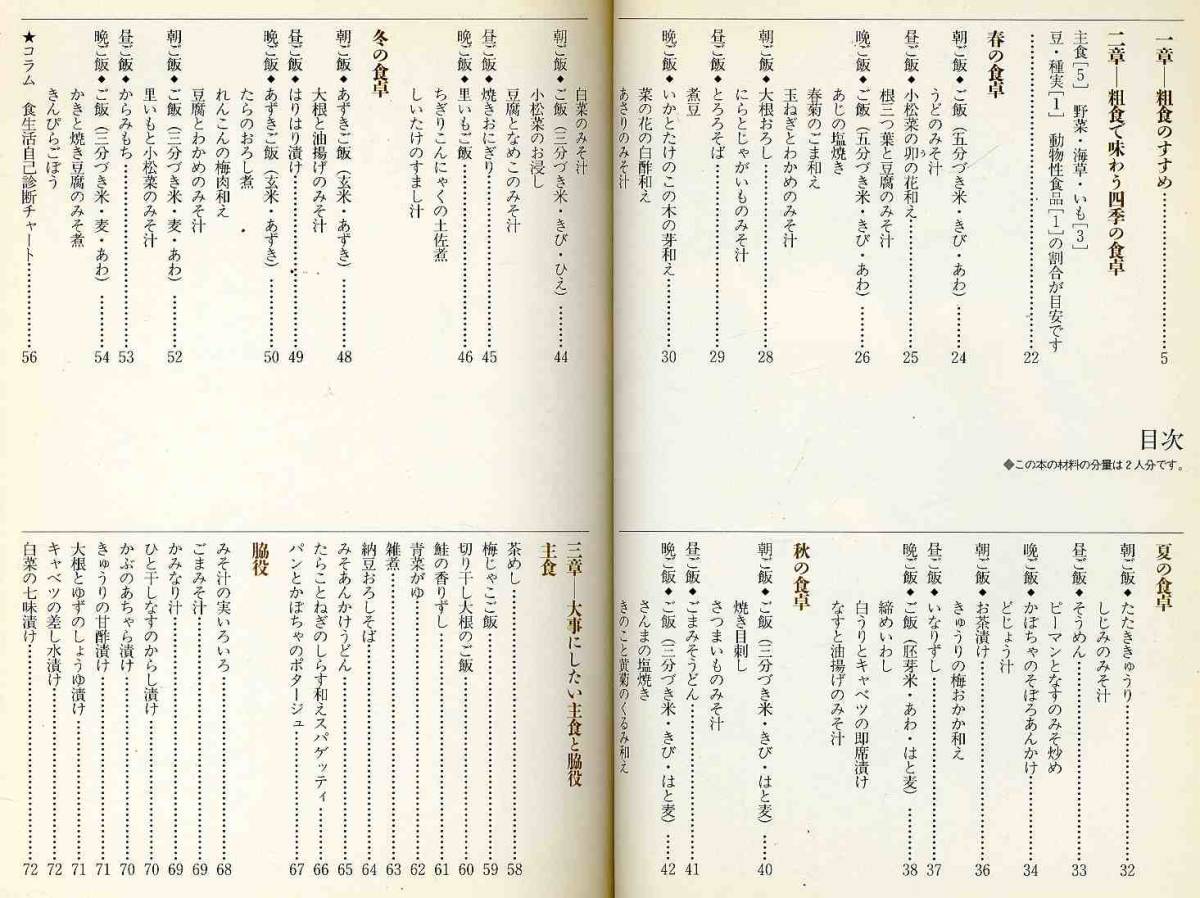 目次
◆この本の材料の分量は2人分です。
一章―粗食のすすめ 5
二章―粗食で味わう四季の食卓
主食[5] 野菜・海草・いも[3]
豆・種実[1] 動物性食品[1]の割合が目安です
22
春の食卓
朝ご飯◆ご飯(五分づき米・きび・あわ) 24
うどのみそ汁
昼ご飯◆小松菜の卯の花和え 25
根三つ葉と豆腐のみそ汁
晩ご飯◆ご飯(五分づき米・きび・あわ) 26
あじの塩焼き
春菊のごま和え
玉ねぎとわかめのみそ汁
朝ご飯◆大根おろし 28
にらとじゃがいものみそ汁
昼ご飯◆とろろそば 29
煮豆
晩ご飯◆いかとたけのこの木の芽和え 30
菜の花の白酢和え
あさりのみそ汁
夏の食卓
朝ご飯◆たたききゅうり 32
しじみのみそ汁
昼ご飯◆そうめん 33
ピーマンとなすのみそ炒め
晩ご飯◆かぼちゃのそぼろあんかけ 34
どじょう汁
朝ご飯◆お茶漬け 36
きゅうりの梅おかか和え
昼ご飯◆いなりずし 37
晩ご飯◆ご飯(胚芽米・あわ・はと麦) 38
締めいわし
白うりとキャベツの即席漬け
なすと油揚げのみそ汁
秋の食卓
朝ご飯◆ご飯(三分づき米・きび・はと麦) 40
焼き目刺し
さつまいものみそ汁
昼ご飯◆ごまみそうどん 41
晩ご飯◆ご飯(三分づき米・きび・はと麦) 42
さんまの塩焼き
きのこと黄菊のくるみ和え
白菜のみそ汁
朝ご飯◆ご飯(三分づき米・きび・ひえ) 44
小松菜のお浸し
豆腐となめこのみそ汁
昼ご飯◆焼きおにぎり 45
晩ご飯◆里いもご飯 46
ちぎりこんにゃくの土佐煮
しいたけのすまし汁
冬の食卓
朝ご飯◆あずきご飯(玄米・あずき) 48
大根と油揚げのみそ汁
昼ご飯◆はりはり漬け 49
晩ご飯◆あずきご飯(玄米・あずき) 50
たらのおろし煮
れんこんの梅肉和え
豆腐とわかめのみそ汁
朝ご飯◆ご飯(三分づき米・麦・あわ) 52
里いもと小松菜のみそ汁
昼ご飯◆からみもち 53
晩ご飯◆ご飯(三分づき米・麦・あわ) 54
かきと焼き豆腐のみそ煮
きんぴらごぼう
★コラム 食生活自己診断チャート 56
三章―大事にしたい主食と脇役
主食
茶めし 58
梅じゃこご飯 59
切り干し大根のご飯 60
鮭の香りずし 61
青菜がゆ 62
雑煮 63
納豆おろしそば 64
みそあんかけうどん 65
たらことねぎのしらす和えスパゲッティ 66
パンとかぼちゃのポタージュ 67
脇役
みそ汁の実いろいろ 68
ごまみそ汁 69
かみなり汁 69
ひと干しなすのからし漬け 70
かぶのあちゃら漬け 70
きゅうりの甘酢漬け 71
大根とゆずのしょうゆ漬け 71
キャベツの差し水漬け 72
白菜の七味漬け 72